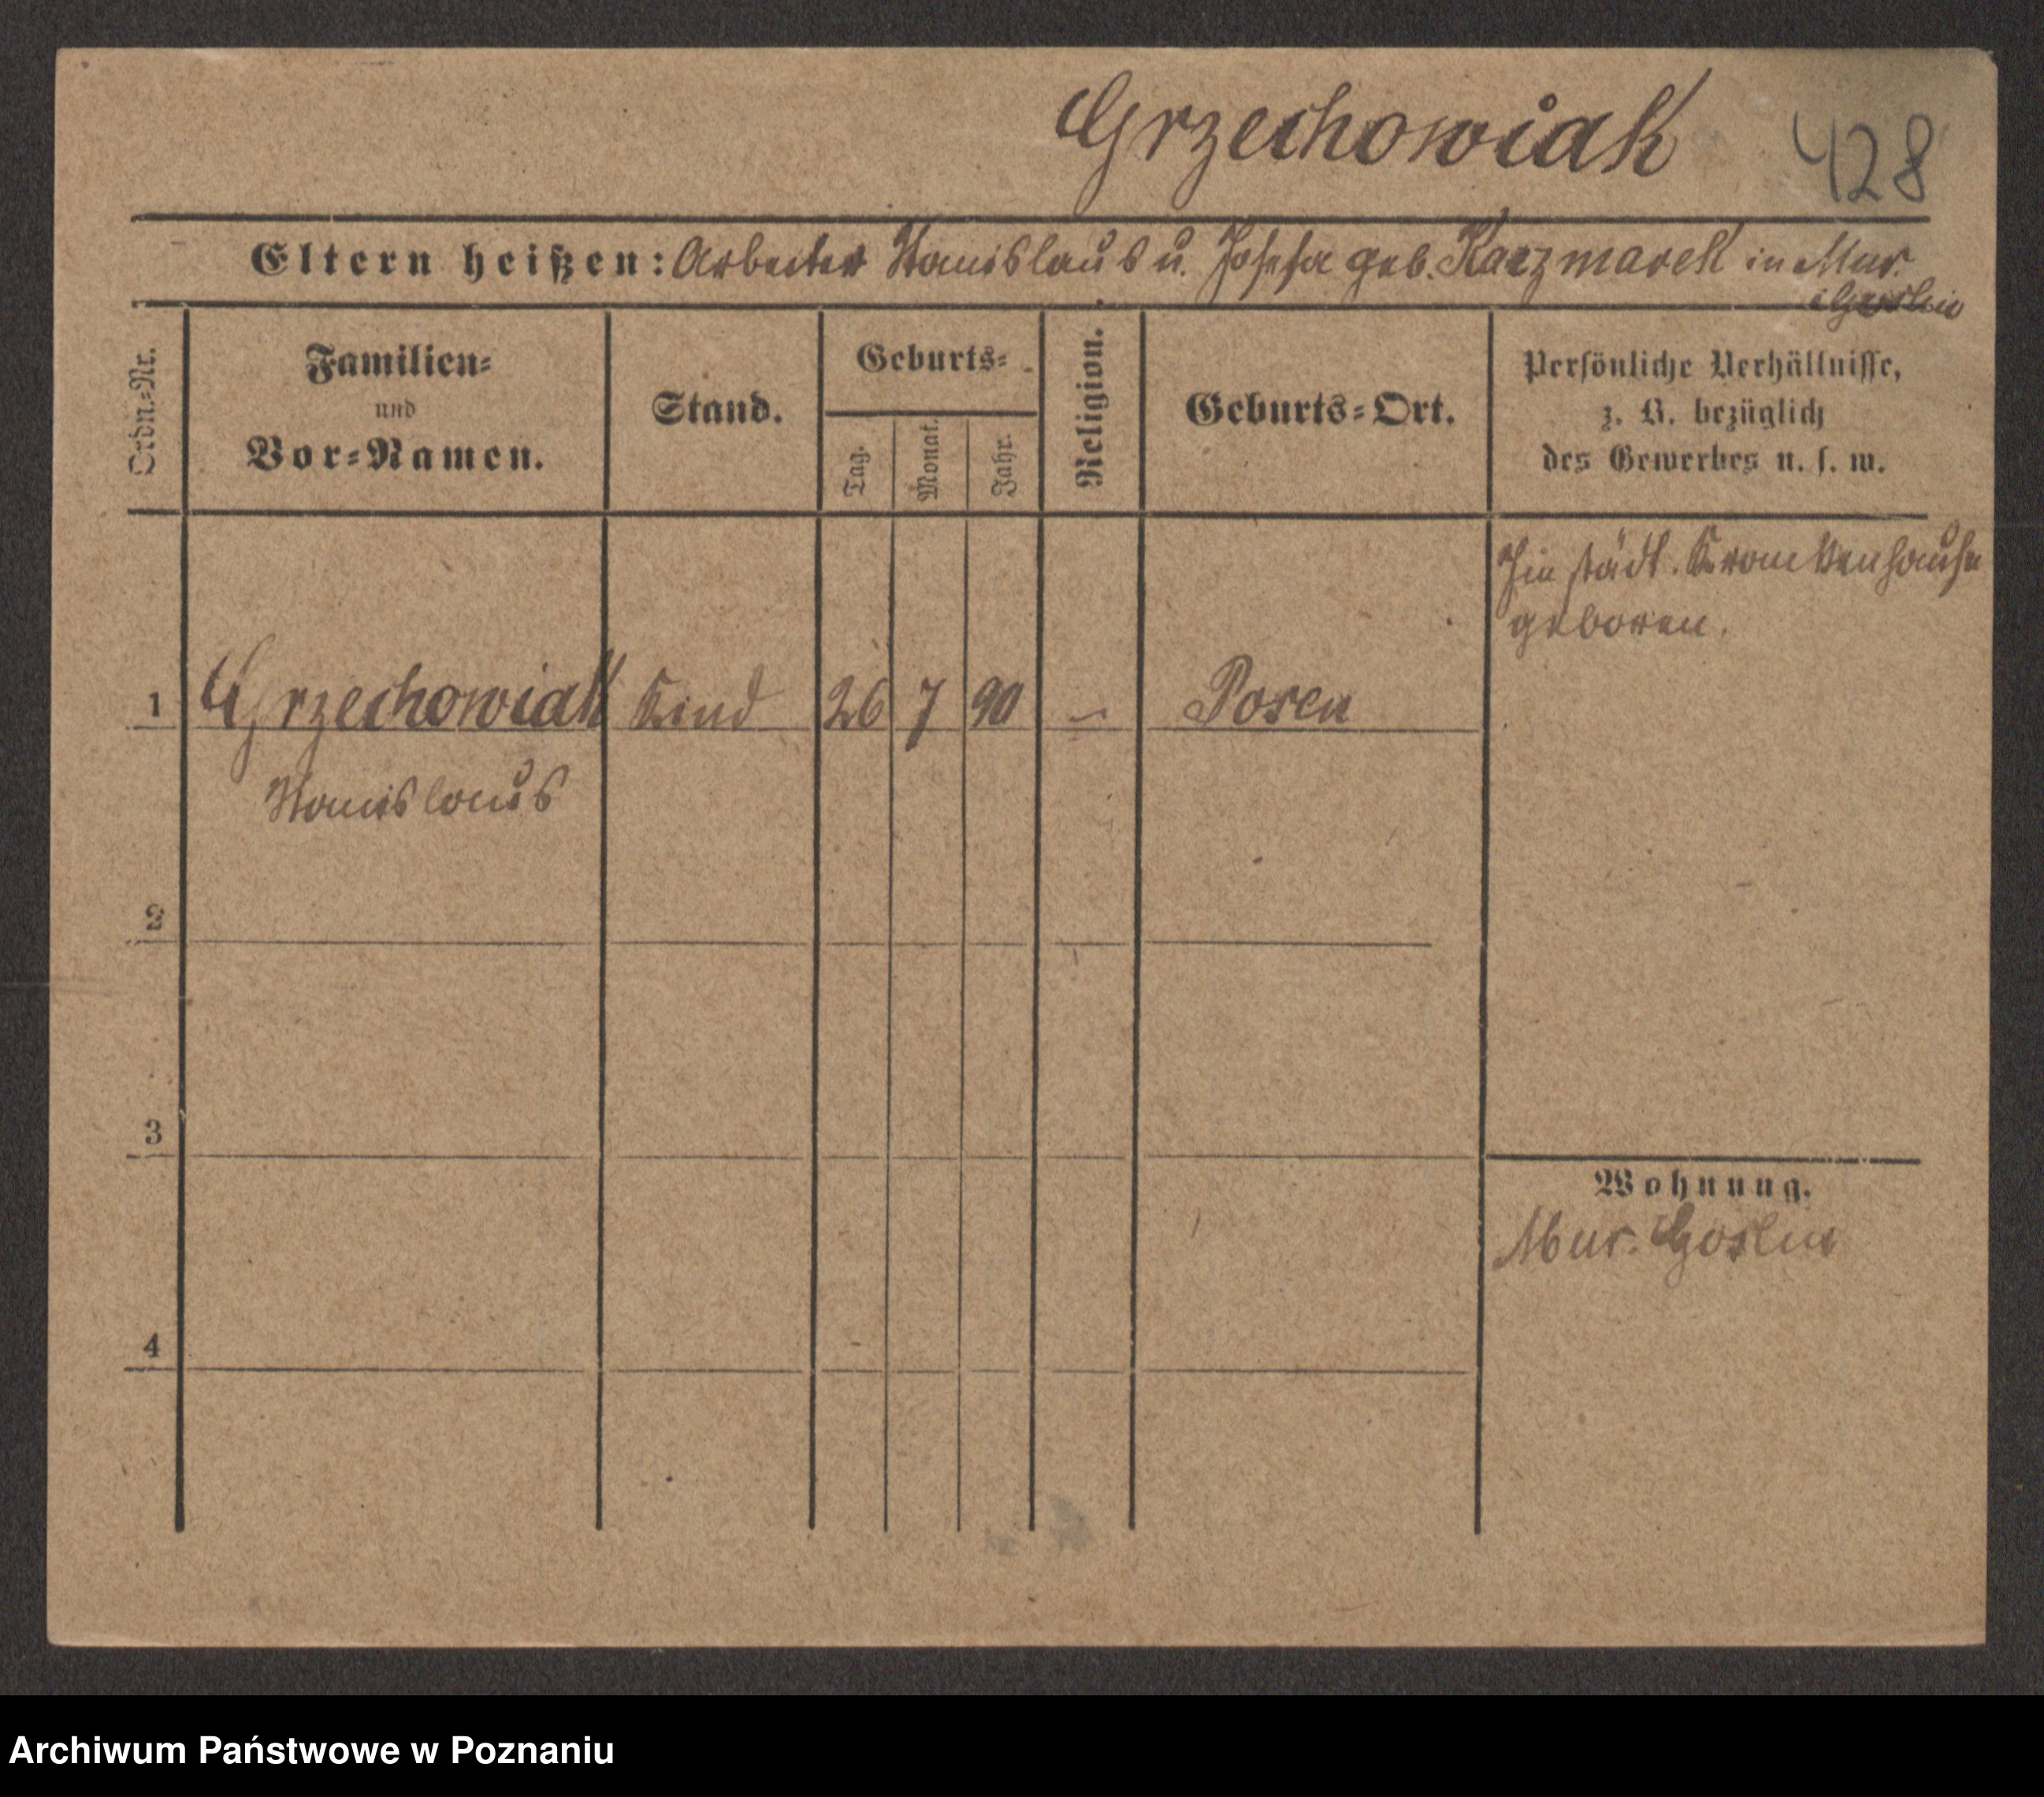 Grzechowiak 428
Eltern heißen: Arbeiter Stanislaus u. Josefa geb. Kaczmarek in Mur.
Goslin
Ordn.-Nr.
Familien-
und
Vor-Namen.
Stand.
Geburts-
Tag.
Monat.
Jahr.
Religion.
Geburts-Ort.
Persönliche Verhältnisse,
z. B. bezüglich
des Gewerbes u. s. w.
Im städt. Krankenhause
geboren.
1 Grzechowiak Kind 26 7 90 – Posen
Stanislaus
2
3
Wohnung.
Mur. Goslin
4
Archiwum Państwowe w Poznaniu